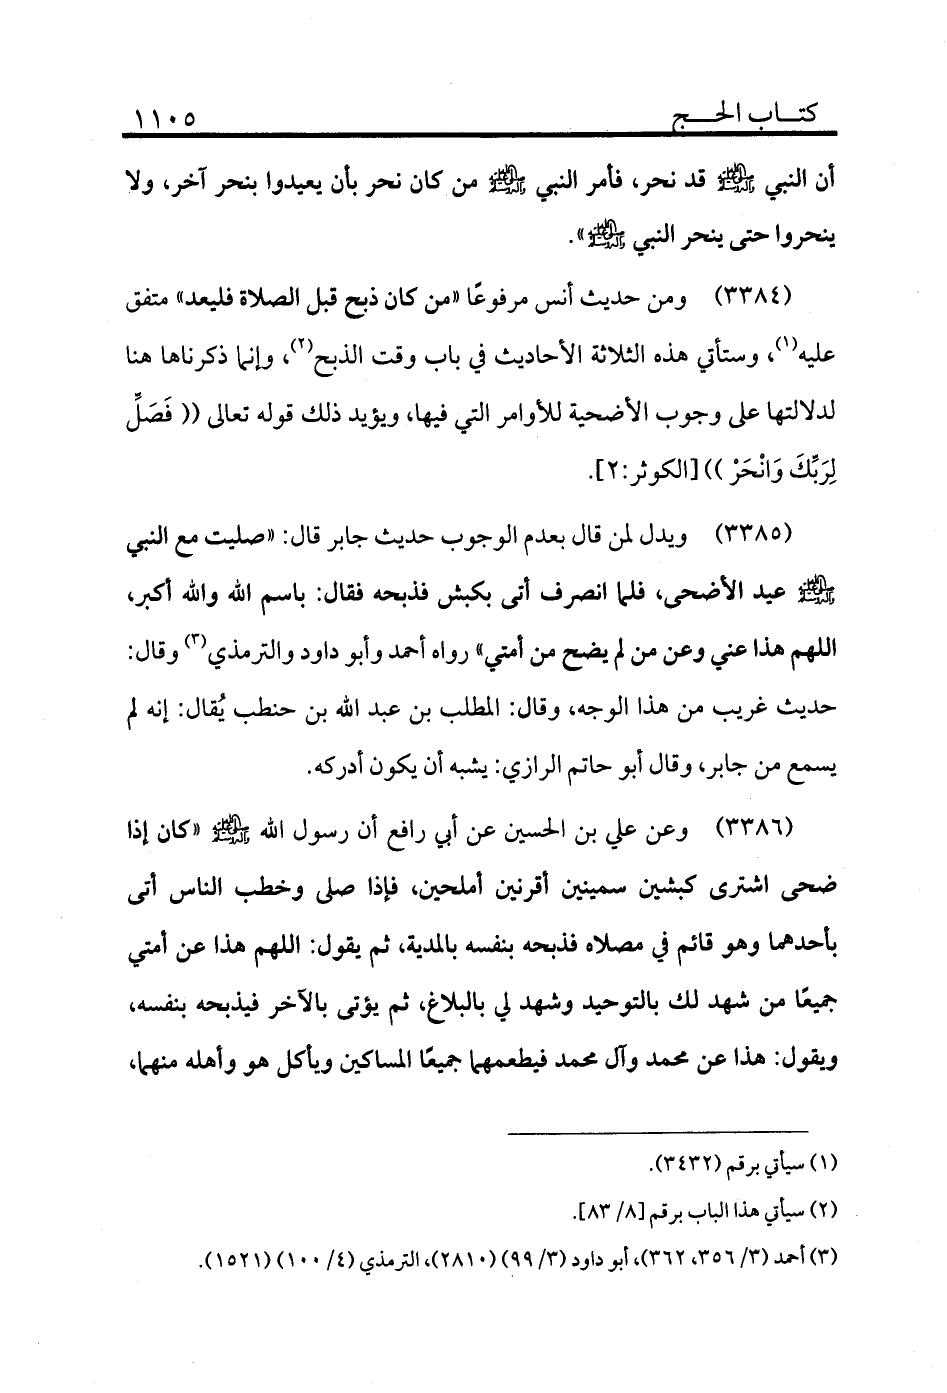 كتاب الحج ١١٠٥
أن النبي ﷺ قد نحر، فأمر النبي ﷺ من كان نحر بأن يعيدوا بنحر آخر، ولا
ينحروا حتى ينحر النبي ﷺ».
(٣٣٨٤) ومن حديث أنس مرفوعًا «من كان ذبح قبل الصلاة فليعد» متفق
عليه(١)، وستأتي هذه الثلاثة الأحاديث في باب وقت الذبح(٢)، وإنما ذكرناها هنا
لدلالتها على وجوب الأضحية للأوامر التي فيها، ويؤيد ذلك قوله تعالى (( فَصَلِّ
لِرَبِّكَ وَانْحَرْ )) [الكوثر:٢].
(٣٣٨٥) ويدل لمن قال بعدم الوجوب حديث جابر قال: «صليت مع النبي
ﷺ عيد الأضحى، فلما انصرف أتى بكبش فذبحه فقال: باسم الله والله أكبر،
اللهم هذا عني وعن من لم يضح من أمتي» رواه أحمد وأبو داود والترمذي(٣) وقال:
حديث غريب من هذا الوجه، وقال: المطلب بن عبد الله بن حنطب يُقال: إنه لم
يسمع من جابر، وقال أبو حاتم الرازي: يشبه أن يكون أدركه.
(٣٣٨٦) وعن علي بن الحسين عن أبي رافع أن رسول الله ﷺ «كان إذا
ضحى اشترى كبشين سمينين أقرنين أملحين، فإذا صلى وخطب الناس أتى
بأحدهما وهو قائم في مصلاه فذبحه بنفسه بالمدية، ثم يقول: اللهم هذا عن أمتي
جميعًا من شهد لك بالتوحيد وشهد لي بالبلاغ، ثم يؤتى بالآخر فيذبحه بنفسه،
ويقول: هذا عن محمد وآل محمد فيطعمهما جميعًا المساكين ويأكل هو وأهله منهما،
(١) سيأتي برقم (٣٤٣٢).
(٢) سيأتي هذا الباب برقم [٨/ ٨٣].
(٣) أحمد (٣/ ٣٥٦، ٣٦٢)، أبو داود (٣/ ٩٩) (٢٨١٠)، الترمذي (٤/ ١٠٠) (١٥٢١).